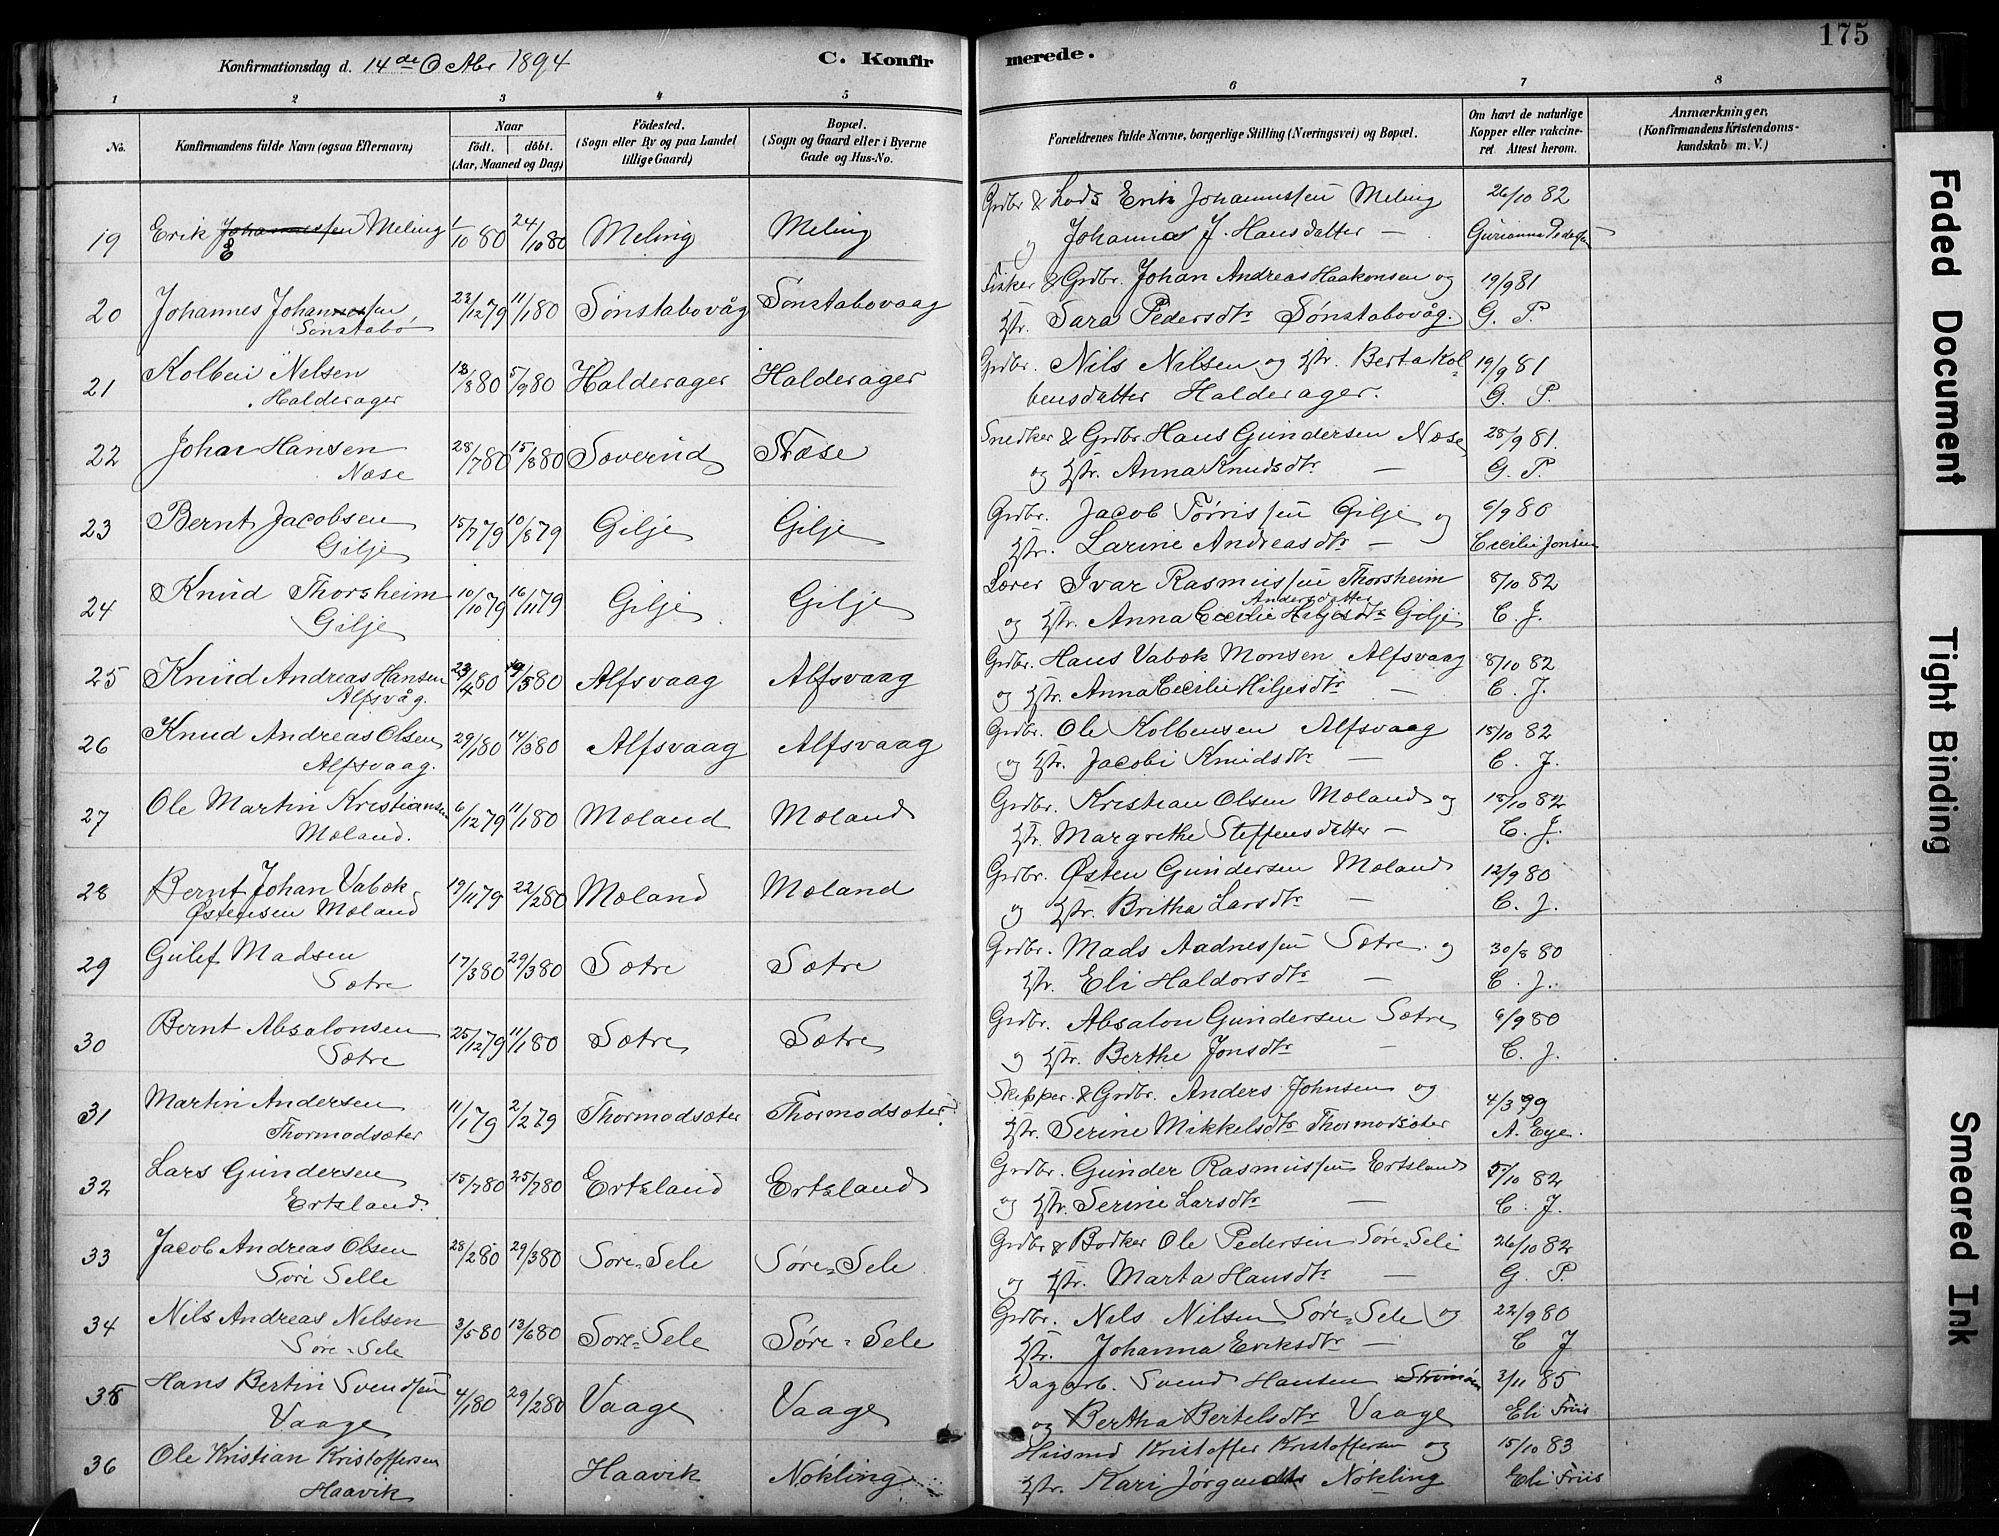 175
Konfirmationsdag d. 14de Octbr 1894 C. Konfirmerede.
1 2 3 4 5 6 7 8
No. Konfirmandens fulde Navn (ogsaa Efternavn) Naar født. døbt. (Aar, Maaned og Dag) Fødested. (Sogn eller By og paa Landet tillige Gaard) Bopæl. (Sogn og Gaard eller i Byerne Gade og Hus-No. Forældrenes fulde Navne, borgerlige Stilling (Næringsvei) og Bopæl. Om havt de naturlige Kopper eller vakcineret. Attest herom. Anmærkninger, (Konfirmandens Kristendomskundskab m. V.)
19 Erik Johannessen Meling 1/10 80 24/10 80 Meling Meling Grdbr & Lods Erik Johannessen Meling 26/10 82
E og Johanna J. Hansdatter — Gurianna Pedersen
20 Johannes Johannessen 23/12 79 11/1 80 Sønstabovåg Sønstabovaag Fisker & Grdbr. Johan Andreas Haakonsen og 19/9 81
Sønstabø Hstr. Sara Pedersdtr Sønstabovåg. G. P.
21 Kolbein Nilsen 13/8 80 5/9 80 Halderager Halderager Grdbr. Nils Nilsen og Hstr. Berta Kol= 19/9 81
Halderager bensdatter Halderager. G. P.
22 Johan Hansen 28/7 80 15/8 80 Sæverud Næse Snedker & Grdbr Hans Gundersen Næse 28/9 81.
Næse og Hstr. Anna Knudsdtr — G. P.
23 Bernt Jacobsen 15/7 79 10/8 79 Gilje Gilje Grdbr. Jacob Tørrissen Gilje og 6/9 80
Gilje Hstr. Larine Andreasdtr — Cecilie Jonsen
24 Knud Thorsheim 10/10 79 16/11 79 Gilje Gilje Lærer Ivar Rasmussen Thorsheim 8/10 82
Andersdatter
Gilje og Hstr. Anna Cecilie Hiljesdtr Gilje C. J.
25 Knud Andreas Hansen 23/4 80 80 Alfsvaag Alfsvaag Grdbr. Hans Vabøk Monsen Alfsvaag 8/10 82
Alfsvåg. og Hstr. Anna Cecilie Hiljesdtr — C. J.
26 Knud Andreas Olsen 29/1 80 14/3 80 Alfsvaag Alfsvaag Grdbr. Ole Kolbensen Alfsvaag 18/10 82
Alfsvaag. og Hstr. Jacobi Knudsdtr — C. J.
27 Ole Martin Kristiansen 6/12 79 11/1 80 Mæland Mæland Grdbr. Kristian Olsen Mæland og 18/10 82
Mæland. Hstr. Margrethe Steffensdatter — C. J.
28 Bernt Johan Vabøk 19/11 79 22/2 80 Mæland Mæland Grdbr. Østen Gundersen Mæland 12/9 80
Østensen Mæland og Hstr. Britha Larsdtr — C. J.
29 Gulef Madsen 17/3 80 29/3 80 Sætre Sætre Grdbr. Mads Aadnessen Sætre og 30/8 80
Sætre Hstr. Eli Haldorsdtr — C. J.
30 Bernt Absalonsen 25/12 79 11/1 80 Sætre Sætre Grdbr. Absalon Gundersen Sætre 6/9 80
Sætre og Hstr. Berthe Jonsdtr — C. J.
31 Martin Andersen 11/1 79 2/2 79 Thormodsæter Thormodsæter Skipper & Grdbr. Anders Johnsen og 4/3 79
Thormodsæter Hstr. Serine Mikkelsdtr Thormodsæter A. Eye.
32 Lars Gundersen 15/7 80 25/7 80 Ertsland Ertsland Grdbr. Gunder Rasmussen Ertsland 5/10 82
Ertsland. og Hstr. Serine Larsdtr — C. J.
33 Jacob Andreas Olsen 28/2 80 29/3 80 Søre=Sele Søre=Sele Grdbr & Bødker Ole Pedersen Søre=Sele 26/10 82
Søre Selle og Hstr. Marta Hansdtr — G. P.
34 Nils Andreas Nilsen 3/5 80 13/6 80 Søre=Sele Søre=Sele Grdbr. Nils Nilsen Søre=Sele og 22/9 80
Søre=Sele Hstr. Johanna Eriksdtr — C J
35 Hans Bertin Svendsen 4/1 80 29/2 80 Vaage Vaage Dagarb. Svend Hansen 3/11 85
Vaage og Bertha Bertelsdtr Vaage Eli Friis
36 Ole Kristian Kristoffersen Haavik Nøkling Husmd Kristoffer Kristoffersen og 15/10 83
Haavik Hstr. Kari Jørgensdtr Nøkling Eli Friis
Faded Document
Tight Binding
Smeared Ink